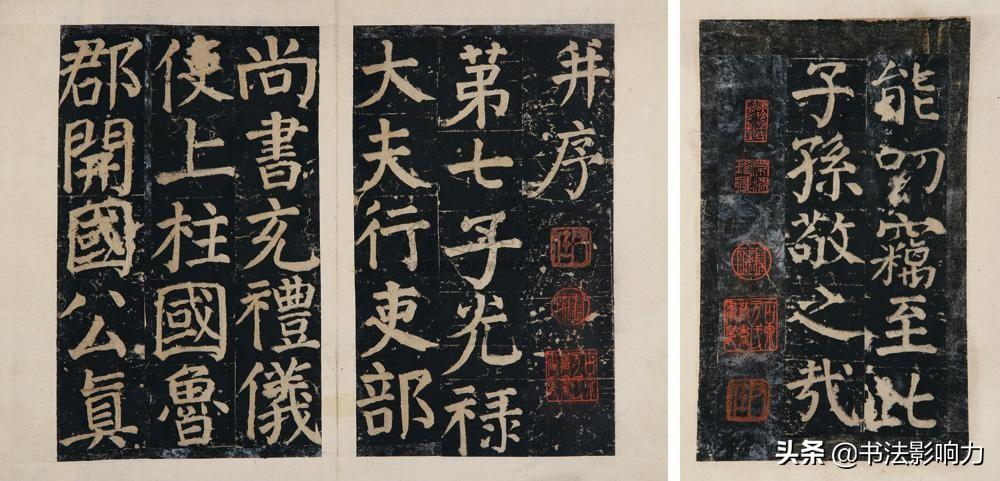 并序
苐七子光禄
大夫行吏部
尚書充禮儀
使上柱國魯
郡開國公眞
能叨竊至此
子孫敬之哉
头条 @书法影响力